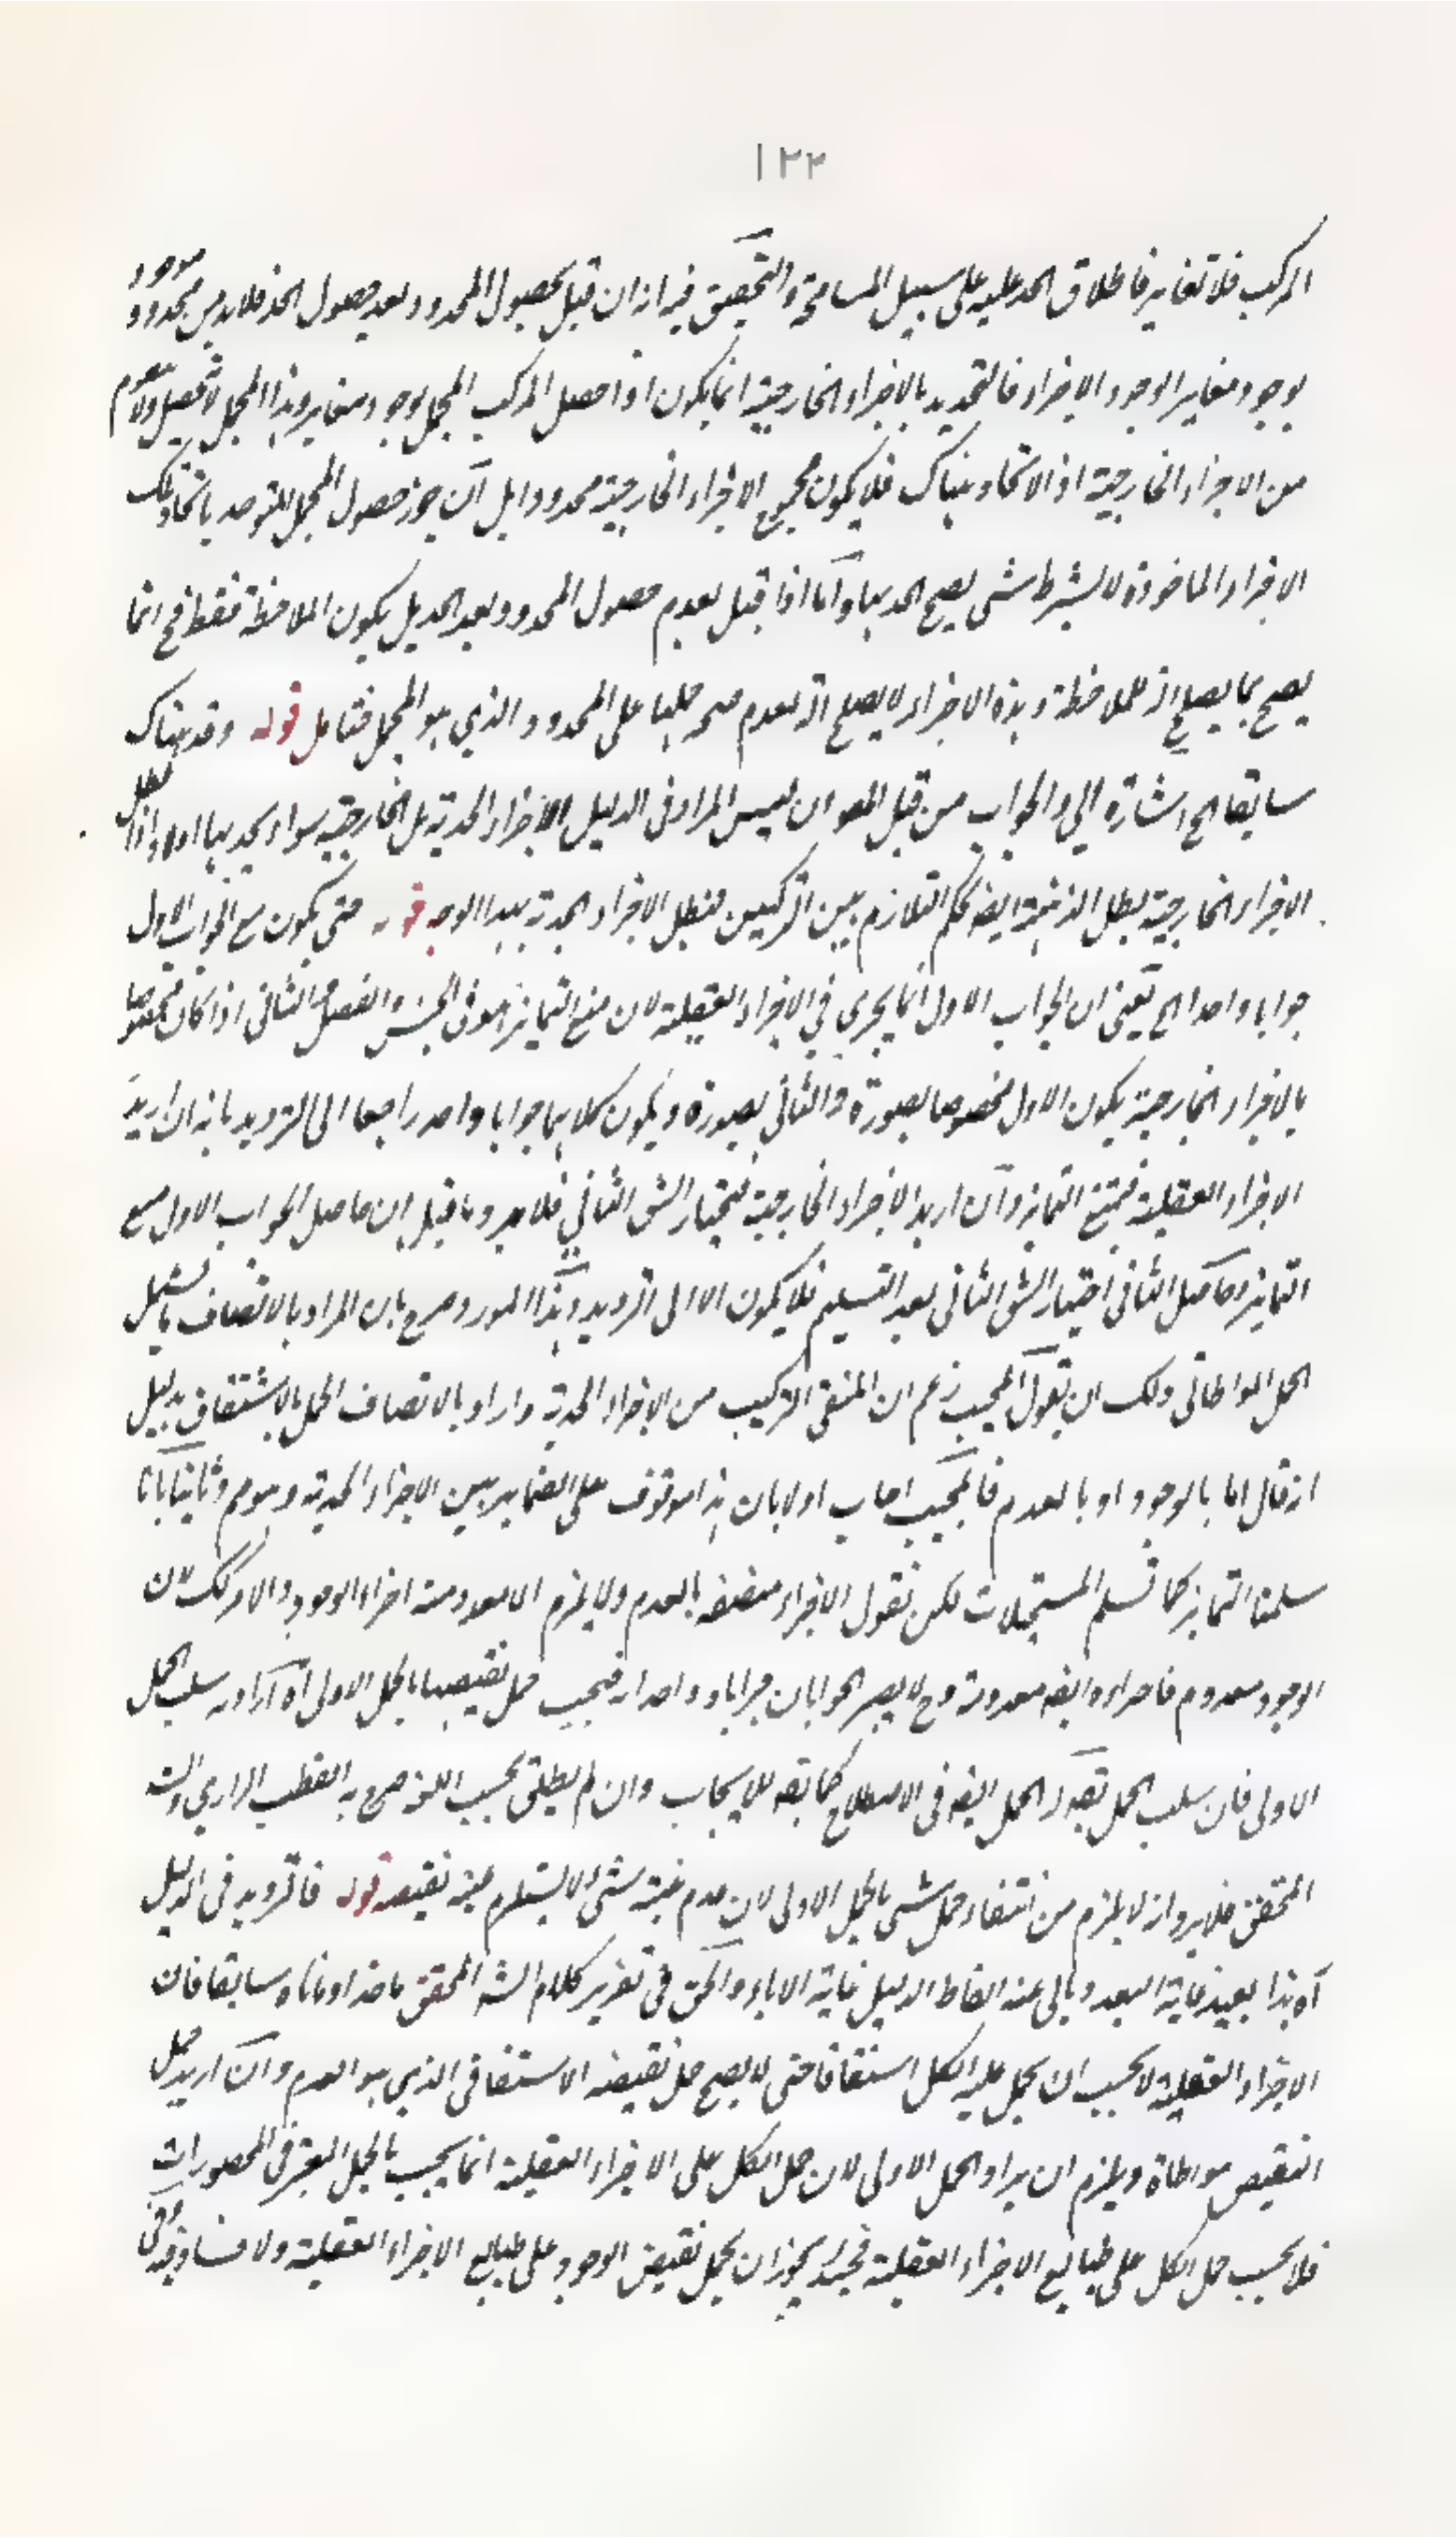 ١٢٣
المركب فلا تغاير فاطلاق الحد عليه على سبيل المسامحة والتحقيق فيه انه ان قيل بحصول المحدود بعد حصول الحد فلابد من محدود موجود
بوجود مغاير لوجود الاجزاء فالتحديد بالاجزاء الخارجية انما يكون اذا حصل المركب المجمل بوجود مغاير وهذا المجمل لا يحصل
من الاجزاء الخارجية اذ لا اتحاد هناك فلا يكون مجموع الاجزاء الخارجية محدودا بل ان جوز حصول المجمل المتوحد باتحاد تلك
الاجزاء الماخوذة لا بشرط شئ يصح الحد بها واما اذا قيل بعدم حصول المحدود بعد الحد بل يكون الملاحظة فقط فح انما
يصح بما يصلح الملاحظة وهذه الاجزاء لا يصلح لعدم صحة حملها على المحدود الذي هو المجمل فتامل قوله وقد هناك
سابقا الخ اشارة الى الجواب من قبل ان ليس المراد فى الدليل الاجزاء الحدية بل الخارجية سواء يحد بها اولا واذا بطل
الاجزاء الخارجية بطل الذهنية ايضا بحكم التلازم بين التركيبين فبطل الاجزاء الحدية بهذا الوجه قوله حتى يكون مع الجواب الاول
جوابا واحدا الخ يعني ان الجواب الاول انما يجري في الاجزاء العقلية لان منع التمايز هو فى الجنس والفصل والثانى اذا كان مخصوصا
بالاجزاء الخارجية يكون الاول مخصوصا بصورة والثانى بصورة ويكون كلاهما جوابا واحدا راجعا الى الترديد بانه ان اريد
الاجزاء العقلية فيمنع التمايز وان اريد الاجزاء الخارجية فيختار الشق الثاني فلا يرد ما قيل ان حاصل الجواب الاول منع
التمايز وحاصل الثانى اختيار الشق الثانى بعد التسليم فلا يكون الا الى الترديد وهذا المورد صرح بان المراد بالاتصاف ما يشمل
الحمل المواطاتى ولك ان تقول المجيب زعم ان المنفى التركيب من الاجزاء الحدية واراد بالاتصاف الحمل بالاشتقاق بدليل
انه قال اما بالوجود او بالعدم فالمجيب اجاب اولا بان هذا موقوف على التمايز بين الاجزاء الحدية وهو م وثانيا بانا
سلمنا التمايز كما تسلم المستحيلات لكن نقول الاجزاء متصفة بالعدم ولا يلزم الا معدومية اجزاء الوجود والامر كك لان
الوجود معدوم فاجزاءه ايضا معدومة وح لا يصير الجوابان جوابا واحدا فيجب حمل نقيضها بالحمل الاولى آه اراد به سلب الحمل
الاولى فان سلب الحمل يقال له الحمل ايضا فى الاصطلاح كما يقال للايجاب وان لم يطلق بحسب اللغة صرح به القطب الرازي والشـ
المحقق فلا يرد انه لا يلزم من انتفاء حمل شئ بالحمل الاولى لان عدم عينية شئ لا يستلزم عينية نقيضه قوله فالترديد فى الدليل
آه هذا بعيد غاية البعد ويأبى عنه الفاظ الدليل غاية الاباء والحق فى تقرير كلام الشـ المحقق ما سابقا فان
الاجزاء العقلية لا يجب ان يحمل عليه الكل اشتقاقا حتى لا يصح حمل نقيضه الاشتقاقى الذي هو العدم وان اريد حمل
النقيض مواطاة ويلزم ان يراد الحمل الاولى لان حمل الكل على الاجزاء العقلية انما يجب بالحمل المعتبر فى المحصورات
فلا يجب حمل الكل على طبائع الاجزاء العقلية فح يجوز ان يحمل نقيض الوجود على طبائع الاجزاء العقلية ولا فساد فيه